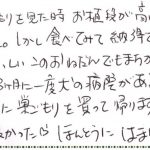 もりを見た時 お値段が高
。しかし食べてみて納得で
いしい このおねだんでもまちが
ヶ月に一度大の病院があ
に巣ごもりを買って帰りま
かった ほんとうに はま